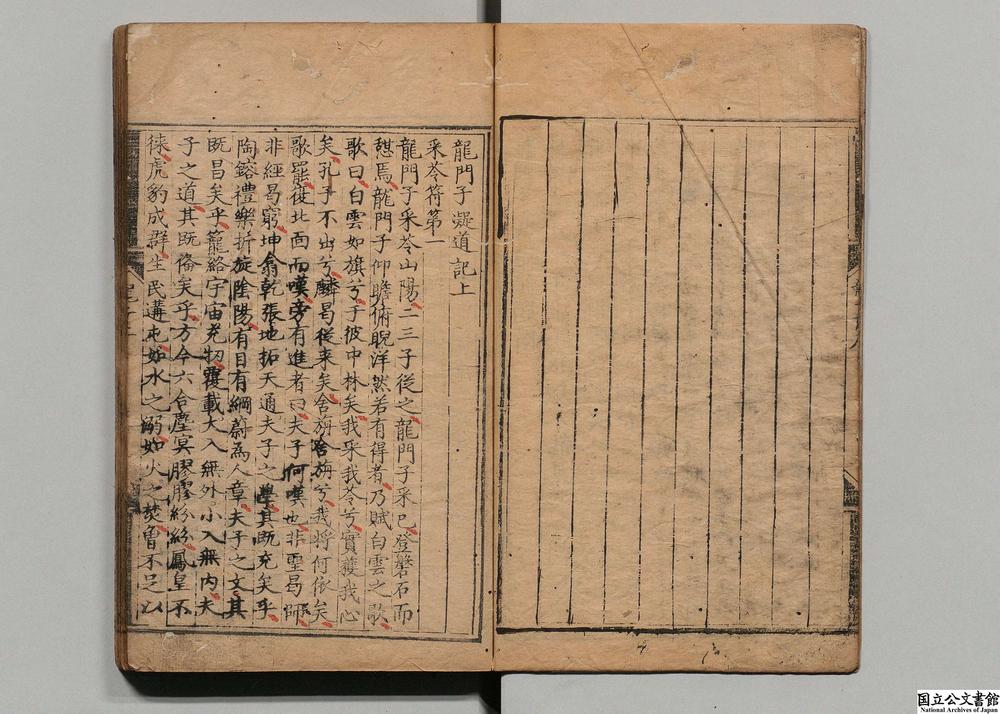 龍門子凝道記上
采苓符第一
龍門子采苓山陽二三子從之龍門子采已登磐石而
憇焉龍門子仰瞻俯睨洋然若有得者乃賦白雲之歌
歌曰白雲如旗兮于彼中林矣我采我苓兮實獲我心
矣孔子不出兮麟曷從来矣舍旃舍旃兮我將何依矣
歌罷徙北面而嘆旁有進者曰夫子何嘆也非聖曷師
非經曷窮坤翕乾張地拓天通夫子之學其既充矣乎
陶鎔禮樂折旋陰陽有目有綱蔚為人章夫子之文其
既昌矣乎籠絡宇宙充牣覆載大入無外小入無内夫
子之道其既俻矣乎方今六合塵冥膠膠紛紛鳳皇不
徠虎豹成群生民遘屯如水之溺如火之焚曽不足以
国立公文書館
National Archives of Japan